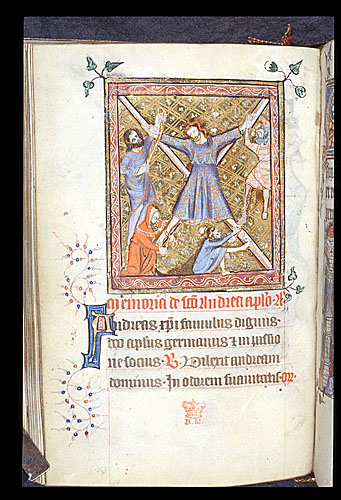 Memoria de sco Andrea aplo. A
Andreas xpi famulus dignus
deo aplus germanus & in passio
ne socius. R. Dilexit andream
dominus. In odorem suauitatis. or.
B. M.